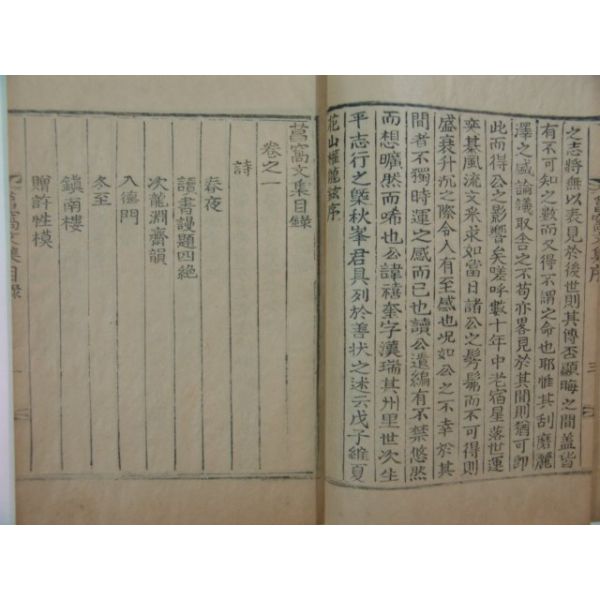 之志將無以表見於後世則其傳否顯晦之間盖皆
有不可知之數而又得不謂之命也耶惟其刮磨麗
澤之感論議取舍之不苟亦畧見於其間則猶可卽
此而得公之影響矣嗟呼數十年中老宿星落世運
奕棊風流文采求如當日諸公之髣髴而不可得則
盛衰升沉之際令人有至感也况如公之不幸於其
間者不獨時運之感而已也讀公遺編有不禁悠然
而想曠然而唏也公諱禧奎字漢瑞其州里世次生
平志行之槩秋峯君具列於善狀之述云戊子維夏
花山權龍鉉序
序
一
菖窩文集目錄
卷之一
詩
春夜
讀書謾題四絶
次龍淵齋韻
入德門
冬至
鎭南樓
贈許性模
菖窩文集目錄
一